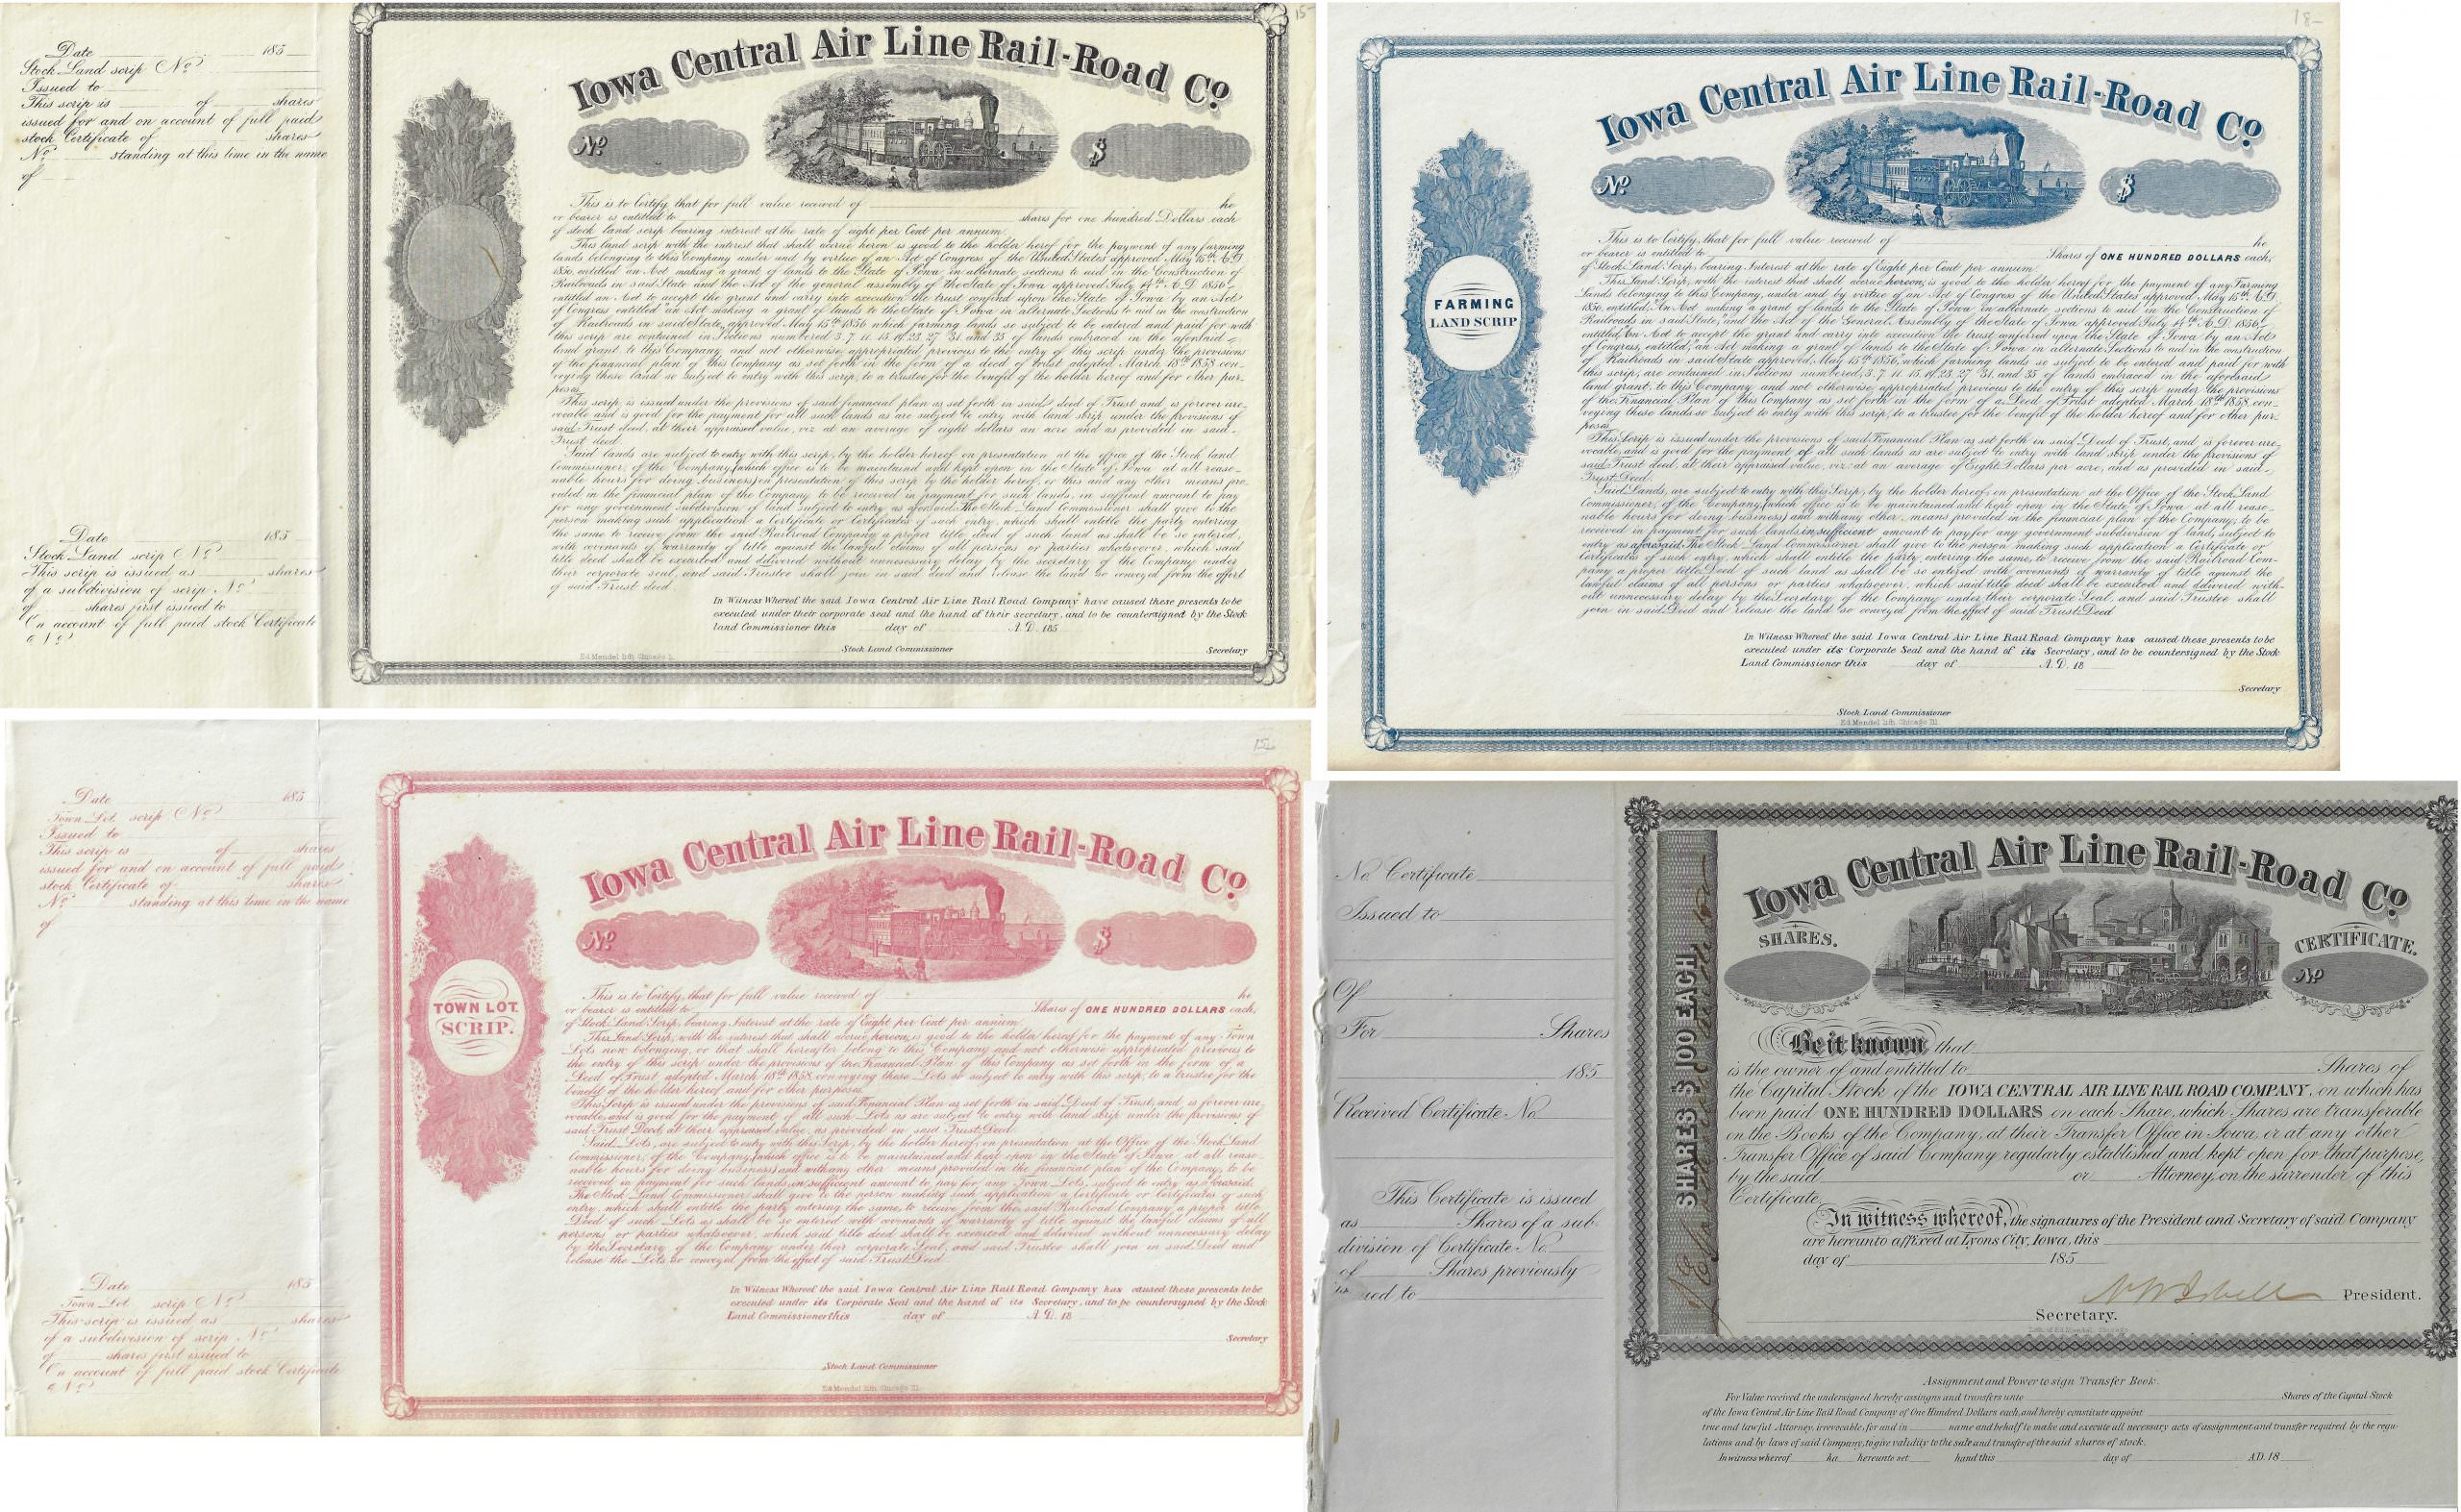 15-
Date 185
Stock Land scrip No
Issued to
This scrip is of shares
issued for and on account of full paid
stock Certificate of shares
No standing at this time in the name
of
Date 185
Stock Land scrip No
This scrip is issued as shares
of a subdivision of scrip No
of shares first issued to
On account of full paid stock Certificate
No
Iowa Central Air Line Rail-Road Co.
No $
This is to Certify that for full value received of he
or bearer is entitled to shares for one hundred Dollars each
of stock land scrip bearing interest at the rate of eight per Cent per annum.
This land scrip with the interest that shall accrue heron is good to the holder hereof for the payment of any farming
lands belonging to this Company under and by virtue of an Act of Congress of the United States approved May 15th A.D.
1856, entitled an Act making a grant of lands to the State of Iowa in alternate sections to aid in the Construction of
Railroads in said State and the Act of the general assembly of the State of Iowa approved July 14th A.D. 1856
entitled an Act to accept the grant and carry into execution the trust confired upon the State of Iowa by an Act
of Congress entitled an Act making a grant of lands to the State of Iowa in alternate Sections to aid in the construction
of Railroads in said State, approved May 15th 1856 which farming lands so subject to be entered and paid for with
this scrip are contained in Sections numbered 3. 7. 11. 15. 19. 23. 27. 31. and 35 of lands embraced in the aforsaid
land grant to this Company and not otherwise appropriated previous to the entry of this scrip under the provisions
of the financial plan of this Company as set forth in the form of a deed of trust adopted March 18th 1858 con-
veying these land so subject to entry with this scrip, to a trustee for the benefit of the holder hereof and for other pur-
poses.
This scrip, is issued under the provisions of said financial plan as set forth in said deed of Trust and is forever irre-
vocable and is good for the payment for all such lands as are subject to entry with land skrip under the provisions of
said Trust deed, at their appraised value, viz at an average of eight dollars an acre and as provided in said
Trust deed.
Said lands are subject to entry with this scrip, by the holder hereof on presentation at the office of the Stock land
Commissioner, of the Company (which office is to be maintained and kept open in the State of Iowa at all reaso-
nable hours for doing business) on presentation of this scrip by the holder hereof, or this and any other means pro-
vided in the financial plan of the Company to be received in payment for such lands, in suffient amount to pay
for any government subdivision of land subject to entry as aforsaid. The Stock Land Commissioner shall give to the
person making such application a Certificate or Certificates of such entry, which shall entitle the party entering
the same to receive from the said Railroad Company a proper title deed of such land as shall be so entered,
with covenants of warranty of title against the lawful claims of all persons or parties whatsoever, which said
title deed shall be executed and delivered without unnecessary delay by the secretary of the Company under
their corporate seal, and said Trustee shall join in said deed and release the land so conveyed from the effort
of said Trust deed.
In Witness Whereof the said Iowa Central Air Line Rail Road Company have caused these presents to be
executed under their corporate seal and the hand of their secretary, and to be countersigned by the Stock
land Commissioner this day of A.D. 185
Stock Land Commissioner Secretary
Ed Mendel lith. Chicago Il.
18-
Iowa Central Air Line Rail-Road Co.
No $
FARMING
LAND SCRIP
This is to Certify, that for full value received of he
or bearer is entitled to Shares of ONE HUNDRED DOLLARS each,
of Stock Land Scrip, bearing Interest at the rate of Eight per Cent per annum.
This Land Scrip, with the interest that shall accrue hereon, is good to the holder hereof for the payment of any Farming
Lands belonging to this Company, under and by virtue of an Act of Congress of the United States approved May 15th A.D.
1856, entitled, An Act making a grant of lands to the State of Iowa in alternate sections to aid in the Construction of
Railroads in said State, and the Act of the General Assembly of the State of Iowa approved July 14th A.D. 1856,
entitled, "An Act to accept the grant and carry into execution the trust confered upon the State of Iowa by an Act
of Congress, entitled, "an Act making a grant of lands to the State of Iowa in alternate Sections to aid in the construction
of Railroads in said State approved May 15th 1856", which farming lands so subject to be entered and paid for with
this scrip, are contained in Sections numbered, 3. 7. 11. 15. 19. 23. 27. 31. and 35 of lands embraced in the aforsaid
land grant, to this Company and not otherwise appropriated previous to the entry of this scrip under the provisions
of the Financial Plan of this Company as set forth in the form of a Deed of Trust adopted March 18th 1858, con-
veying these lands so subject to entry with this scrip, to a trustee for the benefit of the holder hereof and for other pur-
poses.
This Scrip is issued under the provisions of said Financial Plan as set forth in said Deed of Trust, and is forever irre-
vocable, and is good for the payment of all such lands as are subject to entry with land skrip under the provisions of
said Trust deed, at their appraised value, viz: at an average of Eight Dollars per acre, and as provided in said
Trust Deed.
Said Lands, are subject to entry with this Scrip, by the holder hereof, on presentation at the Office of the Stock Land
Commissioner, of the Company, (which office is to be maintained and kept open in the State of Iowa at all reaso-
nable hours for doing business) and with any other means provided in the financial plan of the Company, to be
received in payment for such lands, in sufficient amount to pay for any government subdivision of land, subject to
entry as aforesaid. The Stock Land Commissioner shall give to the person making such application a Certificate or
Certificates of such entry, which shall entitle the party entering the same, to receive from the said Railroad Com-
pany a proper title Deed of such land as shall be so entered with covenants of warranty of title against the
lawful claims of all persons or parties whatsoever, which said title deed shall be executed and delivered with-
out unnecessary delay by the Secretary of the Company under their corporate Seal, and said Trustee shall
join in said Deed and release the land so conveyed from the effect of said Trust Deed
In Witness Whereof the said Iowa Central Air Line Rail Road Company has caused these presents to be
executed under its Corporate Seal and the hand of its Secretary, and to be countersigned by the Stock
Land Commissioner this day of A.D. 18
Secretary
Stock Land Commissioner
Ed Mendel lith. Chicago Ill.
15-
Date 185
Town Lot scrip No
Issued to
This scrip is of shares
issued for and on account of full paid
stock Certificate of shares
No standing at this time in the name
of
Date 185
Town Lot scrip No
This scrip is issued as shares
of a subdivision of scrip No
of shares first issued to
On account of full paid stock Certificate
No
Iowa Central Air Line Rail-Road Co.
No $
TOWN LOT.
SCRIP.
This is to Certify, that for full value received of he
or bearer is entitled to Shares of ONE HUNDRED DOLLARS each,
of Stock Land Scrip, bearing Interest at the rate of Eight per Cent per annum.
This Land Scrip, with the interest that shall accrue hereon, is good to the holder hereof for the payment of any Town
Lots now belonging, or that shall hereafter belong to this Company and not otherwise appropriated previous to
the entry of this scrip under the provisions of the Financial Plan of this Company as set forth in the form of a
Deed of Trust adopted March 18th 1858, conveying these Lots so subject to entry with this scrip, to a trustee for the
benefit of the holder hereof and for other purposes.
This Scrip is issued under the provisions of said Financial Plan as set forth in said Deed of Trust, and is forever irre-
vocable, and is good for the payment of all such Lots as are subject to entry with land skrip under the provisions of
said Trust Deed, at their appraised value, as provided in said Trust Deed.
Said Lots, are subject to entry with this Scrip, by the holder hereof, on presentation at the Office of the Stock Land
Commissioner, of the Company, (which office is to be maintained and kept open in the State of Iowa at all reaso-
nable hours for doing business) and with any other means provided in the financial plan of the Company, to be
received in payment for such lands, in sufficient amount to pay for any Town Lots, subject to entry as aforesaid.
The Stock Land Commissioner shall give to the person making such application a Certificate or Certificates of such
entry, which shall entitle the party entering the same, to receive from the said Railroad Company a proper title
Deed of such Lots as shall be so entered with covenants of warranty of title against the lawful claims of all
persons or parties whatsoever, which said title deed shall be executed and delivered without unnecessary delay
by the Secretary of the Company under their corporate Seal, and said Trustee shall join in said Deed and
release the Lots so conveyed from the effect of said Trust Deed.
In Witness Whereof the said Iowa Central Air Line Rail Road Company has caused these presents to be
executed under its Corporate Seal and the hand of its Secretary, and to be countersigned by the Stock
Land Commissioner this day of A.D. 18
Secretary
Stock Land Commissioner
Ed Mendel lith. Chicago Ill.
No. Certificate
Issued to
Of
For Shares
185
Received Certificate No
This Certificate is issued
as Shares of a sub-
division of Certificate No.
of Shares previously
issued to
SHARES $100 EACH
Iowa Central Air Line Rail-Road Co.
SHARES. CERTIFICATE.
No
Be it known that
is the owner of and entitled to Shares of
the Capital Stock of the IOWA CENTRAL AIR LINE RAIL ROAD COMPANY, on which has
been paid ONE HUNDRED DOLLARS on each Share, which Shares are transferable
on the Books of the Company, at their Transfer Office in Iowa, or at any other
Transfer Office of said Company regularly established and kept open for that purpose,
by the said or Attorney, on the surrender of this
Certificate.
In witness whereof, the signatures of the President and Secretary of said Company
are hereunto affixed at Lyons City, Iowa, this
day of 185
President.
Secretary.
Lith. of Ed Mendel, Chicago
Assignment and Power to sign Transfer Book.
For Value received the undersigned hereby assigns and transfers unto Shares of the Capital Stock
of the Iowa Central Air Line Rail Road Company of One Hundred Dollars each, and hereby constitute appoint
true and lawful Attorney, irrevocable, for and in name and behalf to make and execute all necessary acts of assignment and transfer required by the regu-
lations and by laws of said Company, to give validity to the sale and transfer of the said shares of stock.
In witness whereof ha hereunto set hand this day of A.D. 18